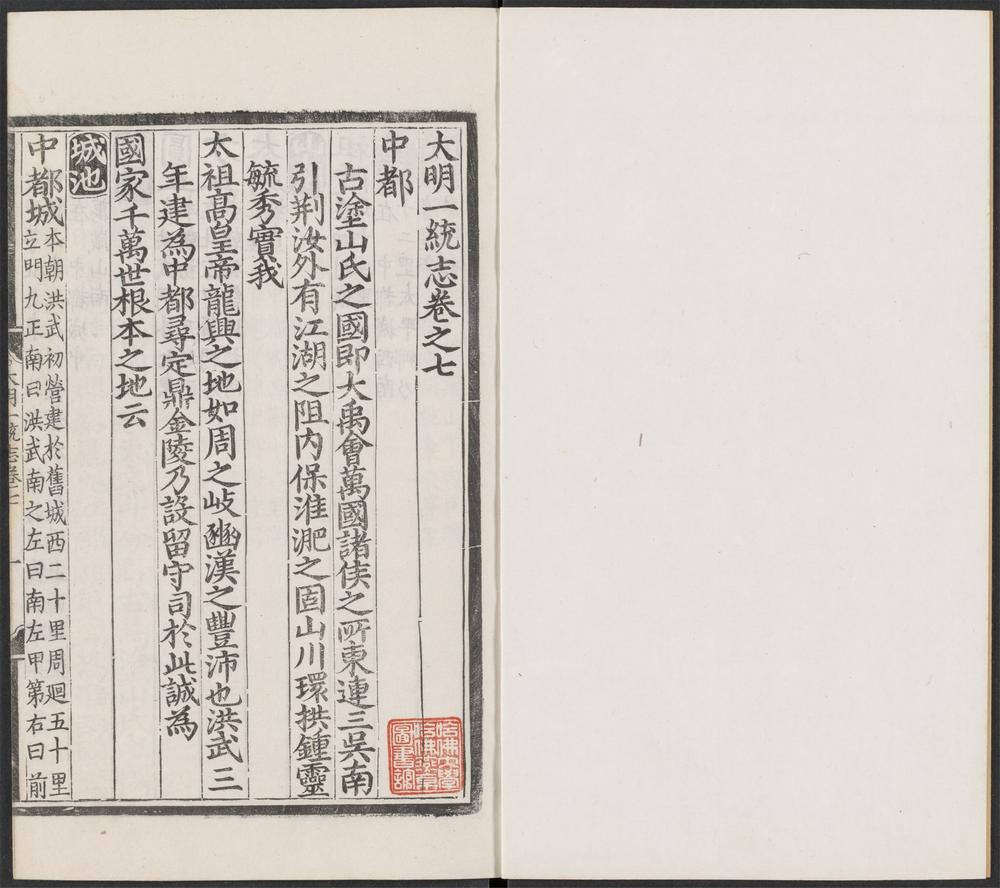 大明一統志卷之七
中都
古塗山氏之國即大禹會萬國諸侯之所東連三吳南
引荆汝外有江湖之阻内保淮淝之固山川環拱鍾靈
毓秀實我
太祖高皇帝龍興之地如周之岐豳漢之豐沛也洪武三
年建為中都尋定鼎金陵乃設留守司於此誠為
國家千萬世根本之地云
城池
中都城本朝洪武初營建於舊城西二十里周廻五十里
立門九正南曰洪武南之左曰南左甲第右曰前
大明一統志卷七
哈佛大學
哈佛燕京
圖書館